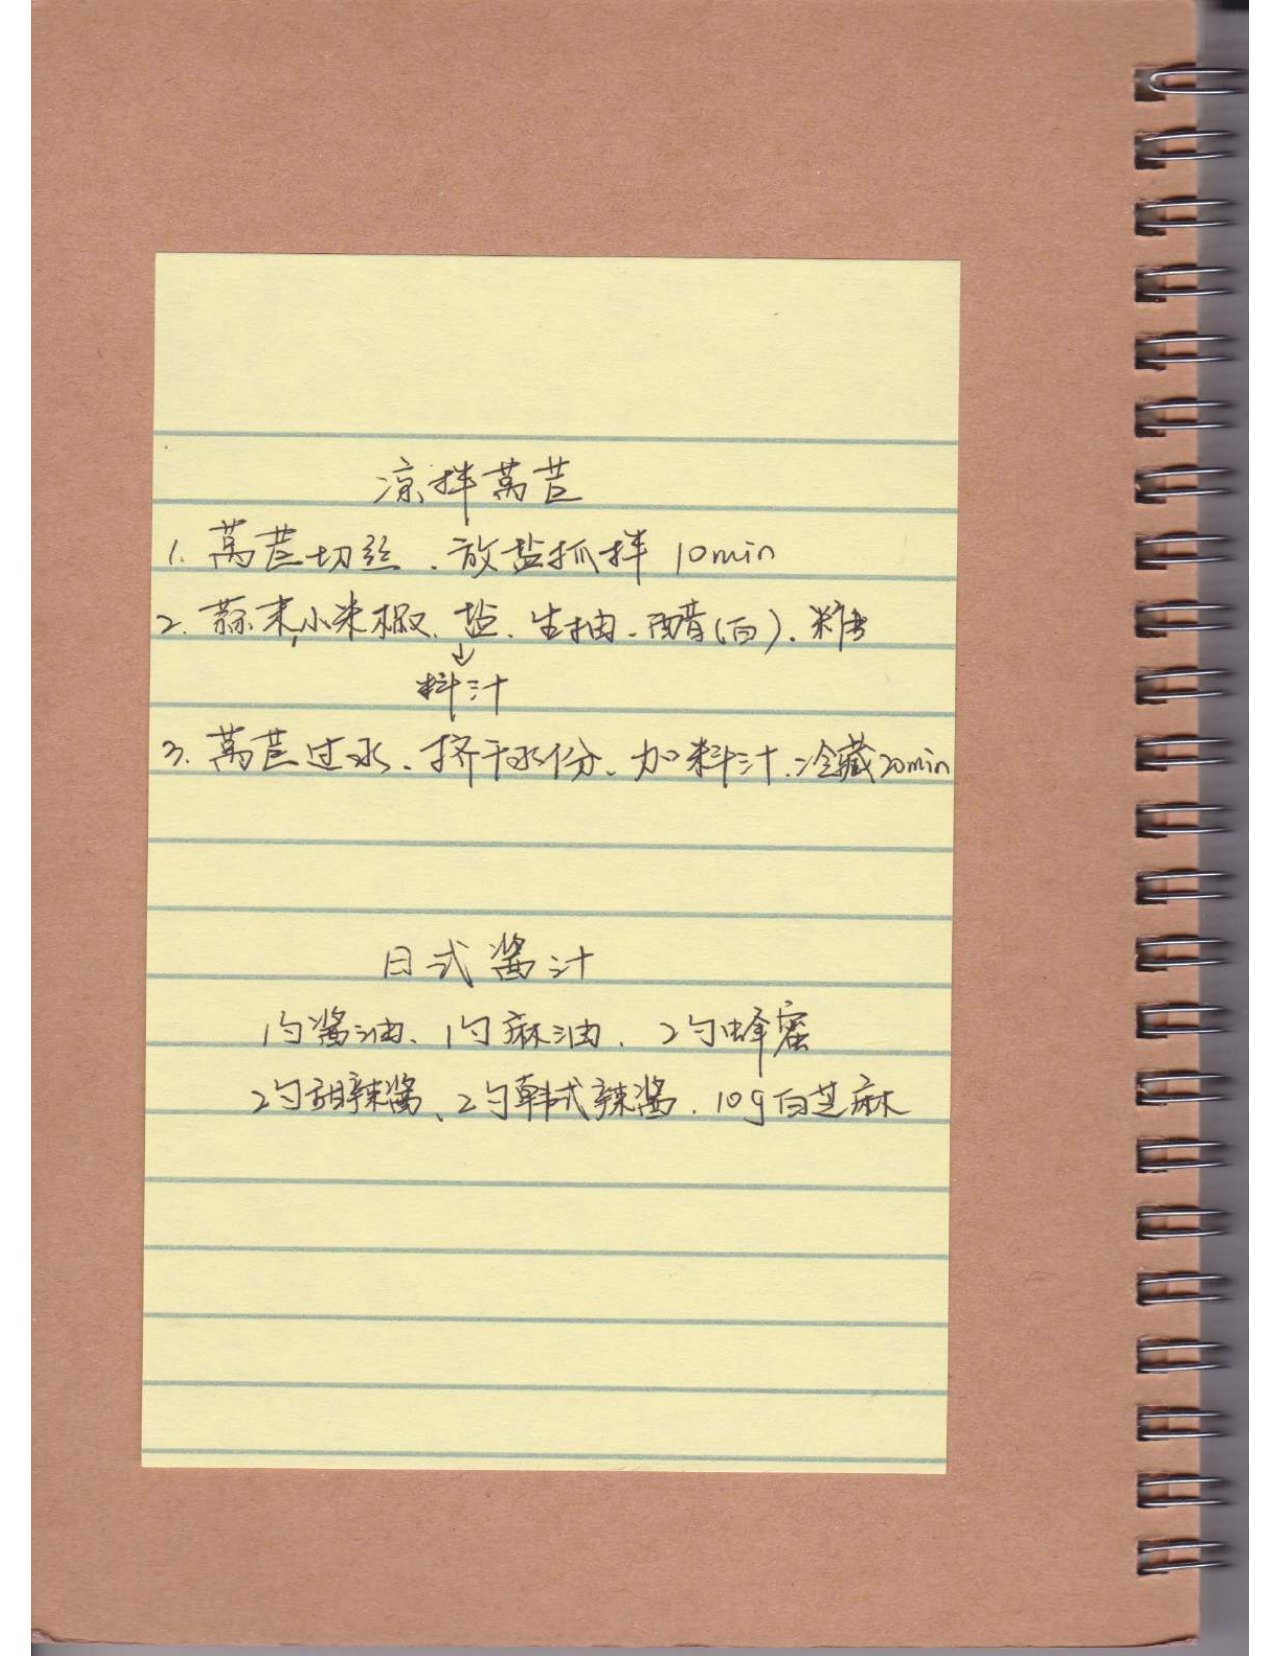 凉拌莴苣
1. 莴苣切丝、放盐抓拌 10min
2. 蒜末,小米椒、盐、生抽、醋(白)、糖
↓
料汁
3. 莴苣过水、挤干水份、加料汁、冷藏20min
日式酱汁
1勺酱油、1勺麻油、2勺蜂蜜
2勺甜辣酱、2勺韩式辣酱、10g白芝麻